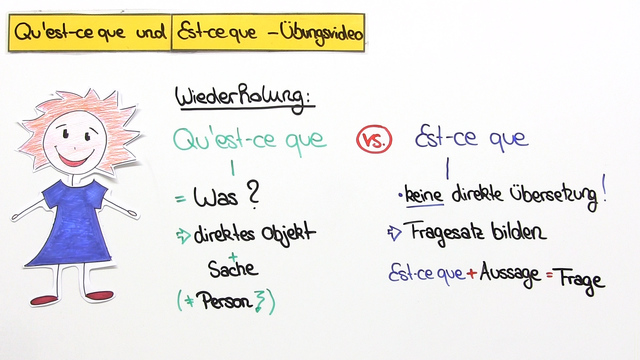 Qu'est-ce que und Est-ce que - Übungsvideo
Wiederholung:
Qu'est-ce que vs. Est-ce que
= Was ?
⇨ direktes Objekt
+
Sache
(≠ Person⚡)
• keine direkte Übersetzung!
⇨ Fragesatz bilden
Est-ce que + Aussage = Frage